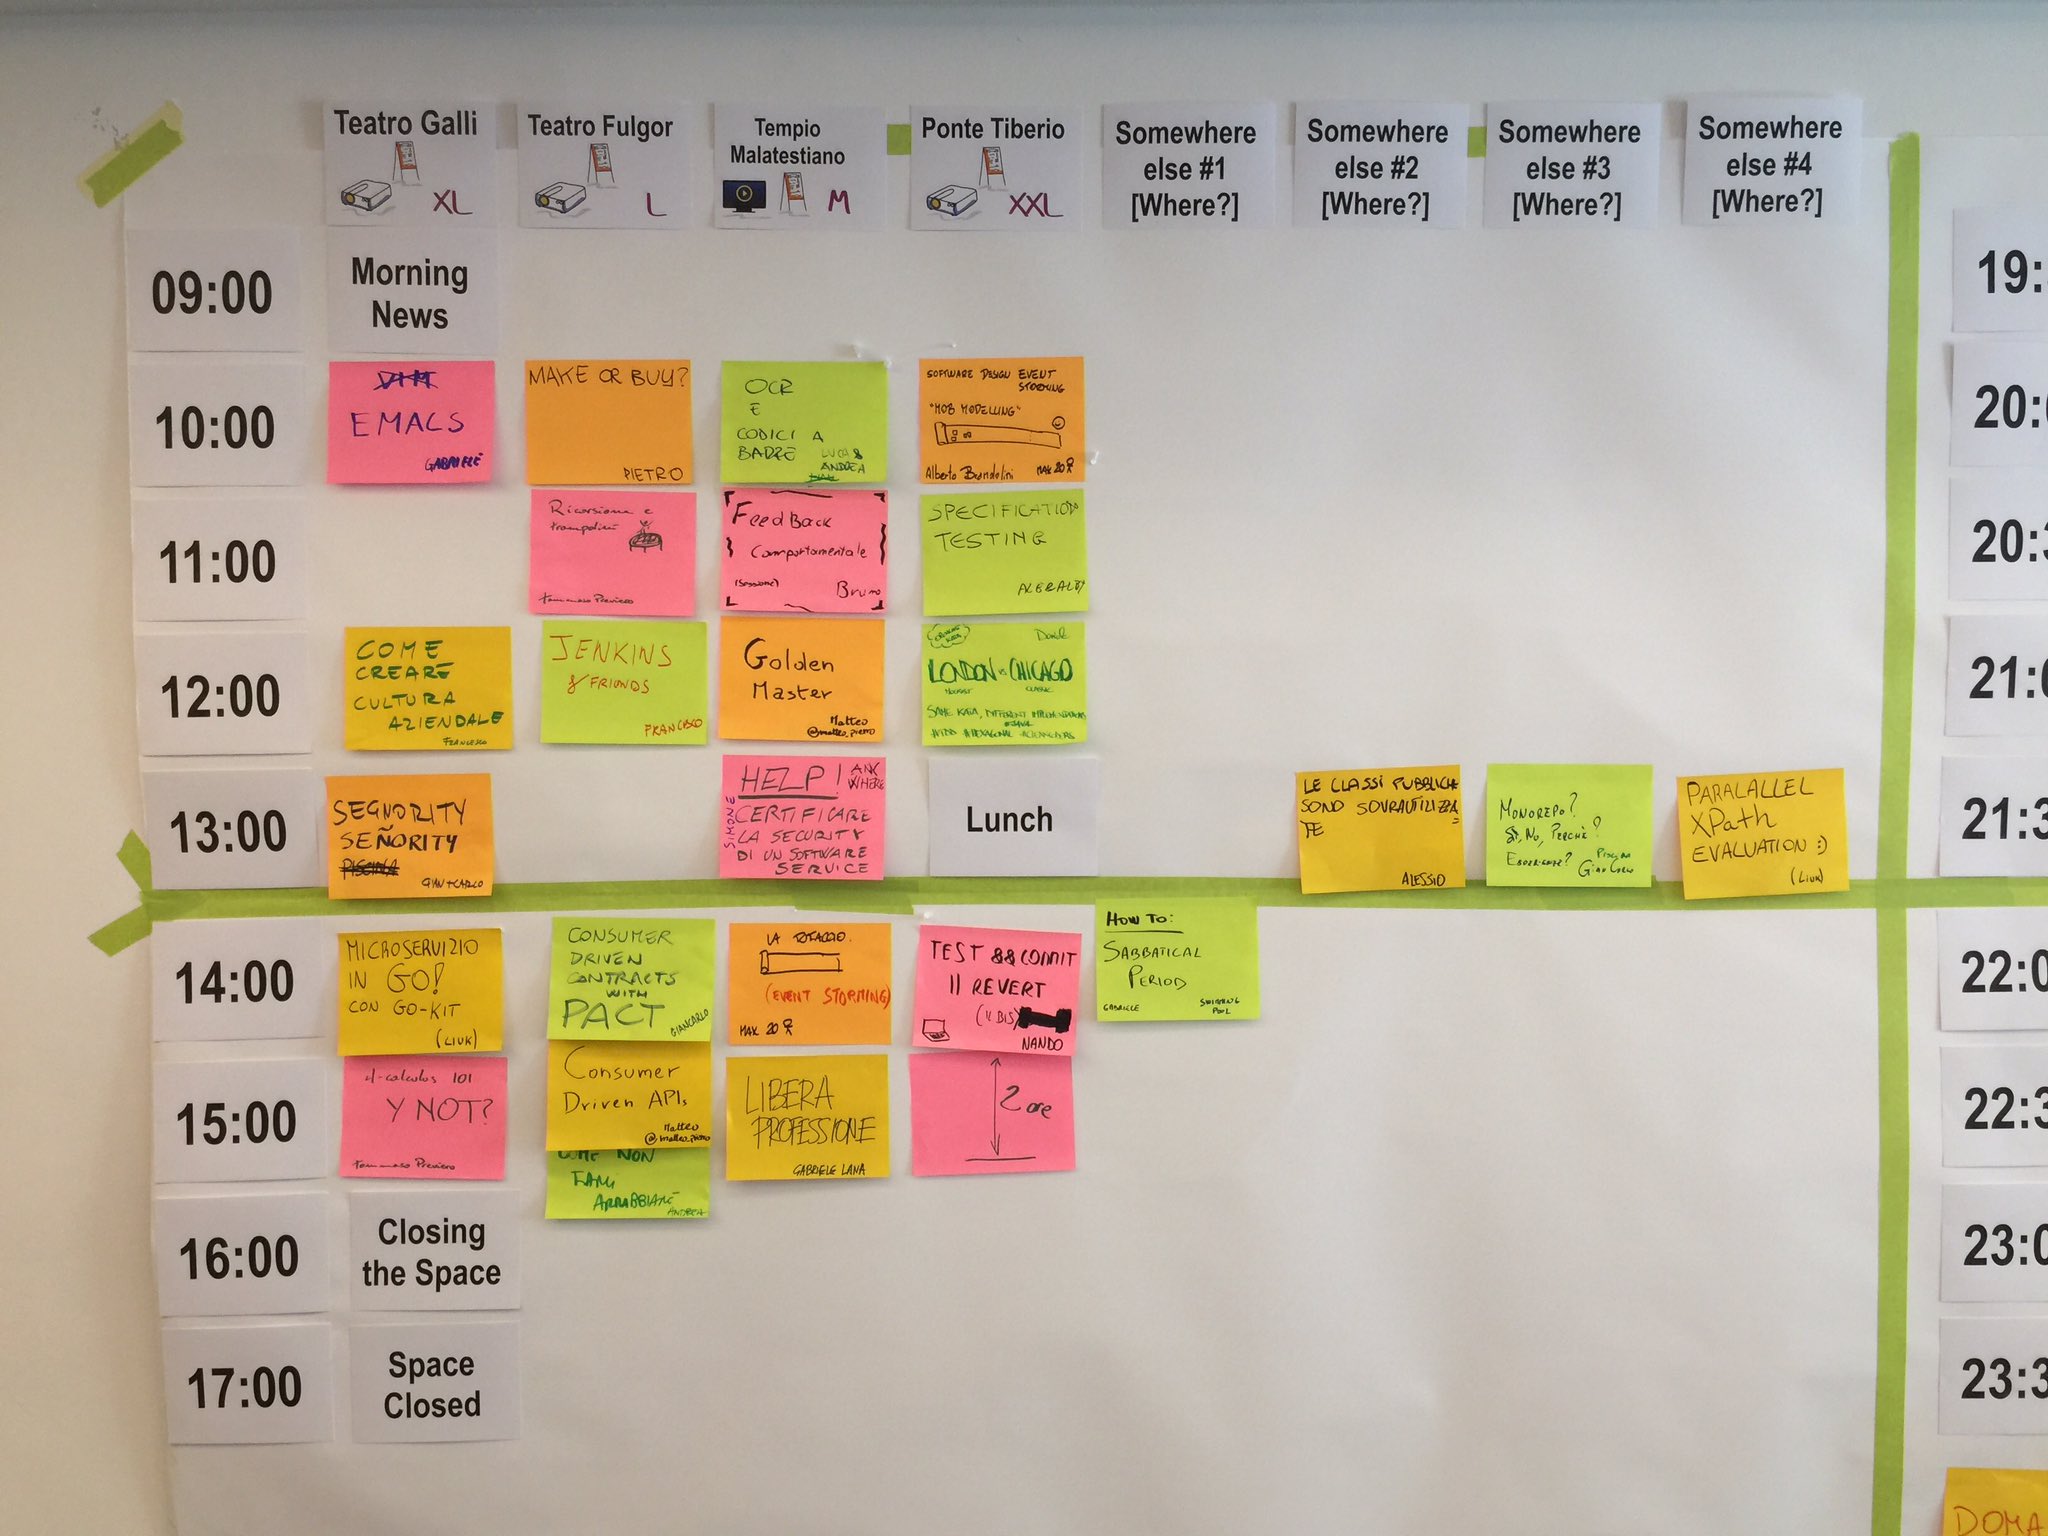 Teatro Galli
XL
Teatro Fulgor
L
Tempio
Malatestiano
M
Ponte Tiberio
XXL
Somewhere
else #1
[Where?]
Somewhere
else #2
[Where?]
Somewhere
else #3
[Where?]
Somewhere
else #4
[Where?]
09:00
Morning
News
19:
10:00
VIM
EMACS
GABRIELE
MAKE OR BUY?
PIETRO
OCR
E
CODICI A
BARRE LUCA &
ANDREA
SOFTWARE DESIGN EVENT
STORMING
"MOB MODELLING"
Alberto Brandolini MAX 20
20:
11:00
Ricorsione e
trampolini
Tommaso Previero
FeedBack
Comportamentale
(sessione) Bruno
SPECIFICATION
TESTING
ALBERALBY
20:3
12:00
COME
CREARE
CULTURA
AZIENDALE
FRANCESCO
JENKINS
& FRIENDS
FRANCESCO
Golden
Master
Matteo
@matteo_pierro
LONDON vs CHICAGO
MOCKIST CLASSIC
SAME KATA, DIFFERENT IMPLEMENTATIONS
#JAVA
#TDD #HEXAGONAL
21:0
13:00
SEGNORITY
SEÑORITY
PISCINA
GIANCARLO
HELP! ANY
WHERE
SIMONE
CERTIFICARE
LA SECURITY
DI UN SOFTWARE
SERVICE
Lunch
LE CLASSI PUBBLICHE
SONO SOVRAUTILIZZA=
TE
ALESSIO
MONOREPO?
SI, NO, PERCHÈ?
ESPERIENZE?
PISCINA
GianCarlo
PARALALLEL
XPath
EVALUATION :)
(LIUK)
21:3
14:00
MICROSERVIZIO
IN GO!
CON GO-KIT
(LIUK)
CONSUMER
DRIVEN
CONTRACTS
WITH
PACT
GIANCARLO
LA
(EVENT STORMING)
MAX 20
TEST && COMMIT
|| REVERT
(IL BIS)
NANDO
HOW TO:
SABBATICAL
PERIOD
GABRIELE SWIMMING
POOL
22:0
15:00
λ-calculus 101
Y NOT?
Tommaso Previero
Consumer
Driven APIs
Matteo
@matteo_pierro
COME NON
FARMI
ARRABBIARE
ANDREA
LIBERA
PROFESSIONE
GABRIELE LANA
2 ore
22:3
16:00
Closing
the Space
23:0
17:00
Space
Closed
23:3
DOMA